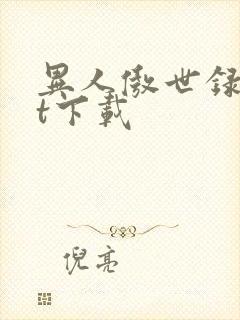 異人傲世録
t下載
倪亮